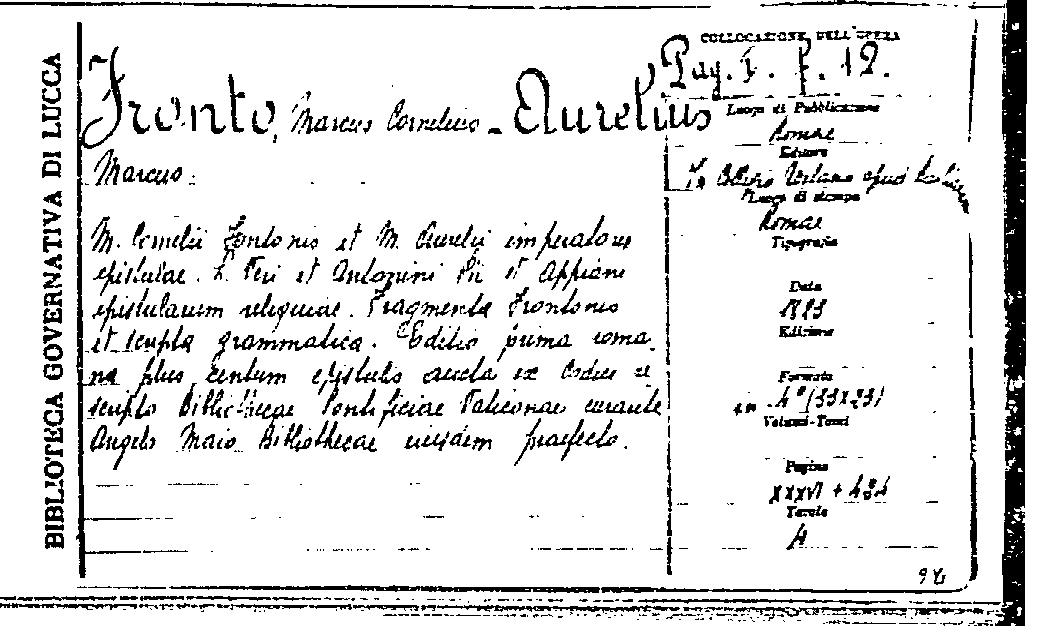 BIBLIOTECA GOVERNATIVA DI LUCCA
Fronto, Marcus Cornelius - Aurelius
Marcus.
M. Cornelii Frontonis et M. Aurelii imperatoris
epistulae. L. Veri et Antonini Pii et Appiani
epistularum reliquiae. Fragmenta Frontonis
et scripta grammatica. Editio prima roma
na plus centum epistulis aucta ex codice re
scripto Bibliothecae Pontificiae Vaticanae curante
Angelo Maio Bibliothecae eiusdem praefecto.
COLLOCAZIONE DELL'OPERA
Pag. I. F. 12.
Luogo di Pubblicazione
Romae
Editore
In Collegio Urbano apud
Luogo di stampa
Romae
Tipografia
Data
Edizione
Formato
in 4° (33x23)
Volumi-Tomi
Pagine
XXXVI +
Tavole